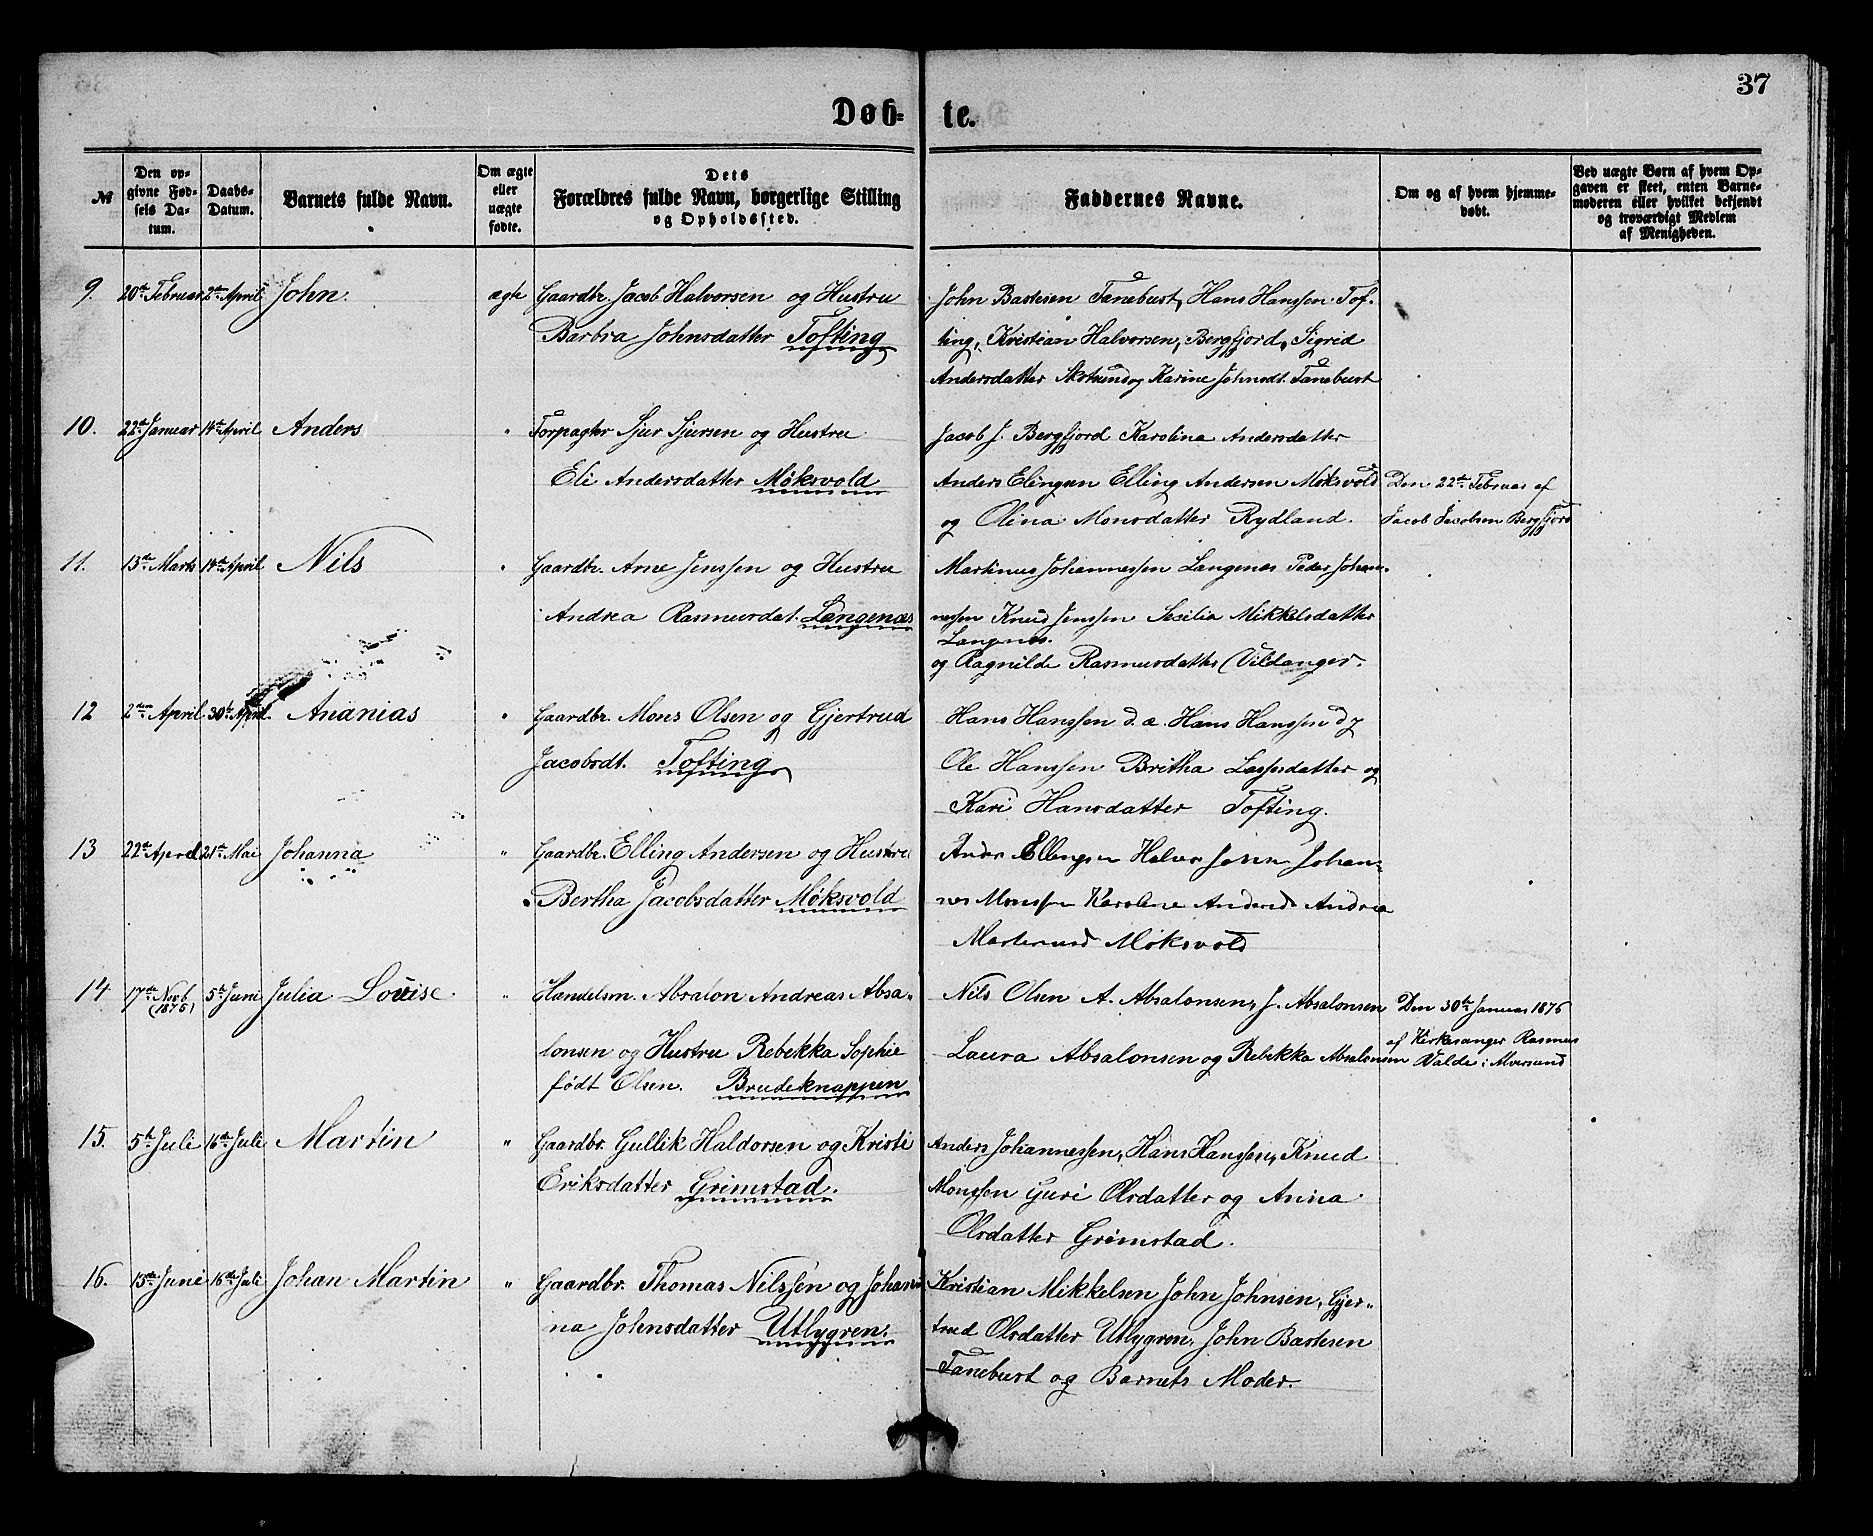 37
Døb- te.
№
Den opgivne Fødsels Datum.
Daabs-Datum.
Barnets fulde Navn.
Om ægte eller uægte fødte.
Dets Forældres fulde Navn, borgerlige Stilling og Opholdssted.
Faddernes Navne.
Om og af hvem hjemmedøbt.
Ved uægte Børn af hvem Opgaven er skeet, enten Barnemoderen eller hvilket bekjendt og troværdigt Medlem af Menigheden.
9. 20de Februar 2den April John. ægte Gaardbr. Jacob Halvorsen og Hustru John Bastesen Tanebust, Hans Hanssen Tof-
Barbra Johnsdatter Tofting ting, Kristian Halvorsen, Bergfjord, Sigrid
Andersdatter og Karine Johnsdt. Tanebust
10. 22de Januar 14de April Anders " Forpagter Sjur Sjursen og Hustru Jacob J. Bergfjord Karolina Andersdatter
Eli Andersdatter Møksvold Anders Elingsen Elling Andersen Møksvold Den 22de Februar af
og Olina Monsdatter Rydland. Jacob Jacobsen Bergfjord
11. 13de Marts 14de April Nils " Gaardbr. Arne Jenssen og Hustru Martinus Johannessen Langenæs Peder Johan-
Andrea Rasmusdat. Langenæs nessen Knud Jenssen Secilia Mikkelsdatter
Langnes.
og Ragnilde Rasmusdatter Vildanger.
12 2den April 30te April. Ananias " Gaardbr. Mons Olsen og Gjertrud Hans Hanssen d. æ. Hans Hanssen d y
Jacobsdt. Tofting Ole Hanssen Britha Lassesdatter og
Kari Hansdatter Tofting.
13 22de April 21de Mai Johanna " Gaardbr. Elling Andersen og Hustru Andr Ellingsen Halvor Johan-
Bertha Jacobsdatter Møksvold nes Monssen Karoline Andersd Andrea
Møksvold
14 17de Novb (1875) 5te Juni Julia Lovise " Handelsm. Absalon Andreas Absa- Nils Olsen A. Absalonsen, J. Absalonsen Den 30te Januar 1876
lonsen og Hustru Rebekka Sophie Laura Absalonsen og Rebekka Absalonsen af Kirkesanger Rasmus
født Olsen. Brudeknappen Valde i Alversund
15. 5te Juli 16de Juli Martin " Gaardbr. Gullik Haldorsen og Kristi Anders Johannessen, Hans Hanssen, Knud
Eriksdatter Grimstad. Monssen Guri Olsdatter og Anna
Olsdatter Grimstad.
16. 15de Juni 16de Juli Johan Martin " Gaardbr. Thomas Nilssen og Johan- Kristian Mikkelsen John Johnsen, Gjer-
na Johnsdatter Utlygren. trud Olsdatter Utlygren, John Bastesen
Tanebust og Barnets Moder.